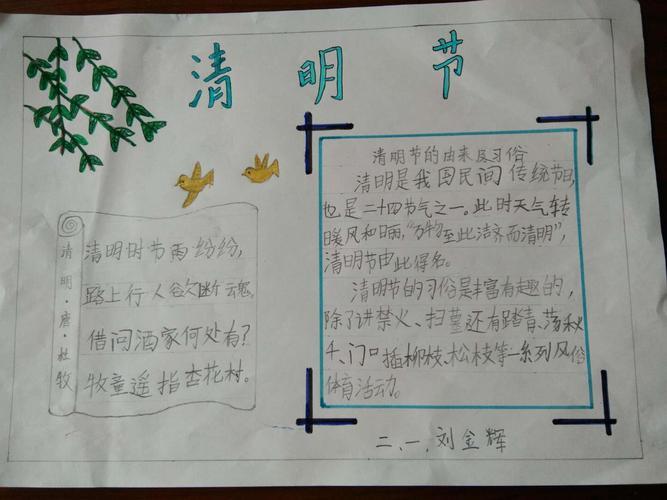 清明节
清明·唐·杜牧
清明时节雨纷纷,
路上行人欲断魂。
借问酒家何处有?
牧童遥指杏花村。
清明节的由来及习俗
清明是我国民间传统节日,
也是二十四节气之一。此时天气转
暖风和日丽,"万物至此洁齐而清明",
清明节由此得名。
清明节的习俗是丰富有趣的,
除了讲禁火、扫墓还有踏青、荡秋
千、门口插柳枝、松枝等一系列风俗
体育活动。
二、一、刘金辉